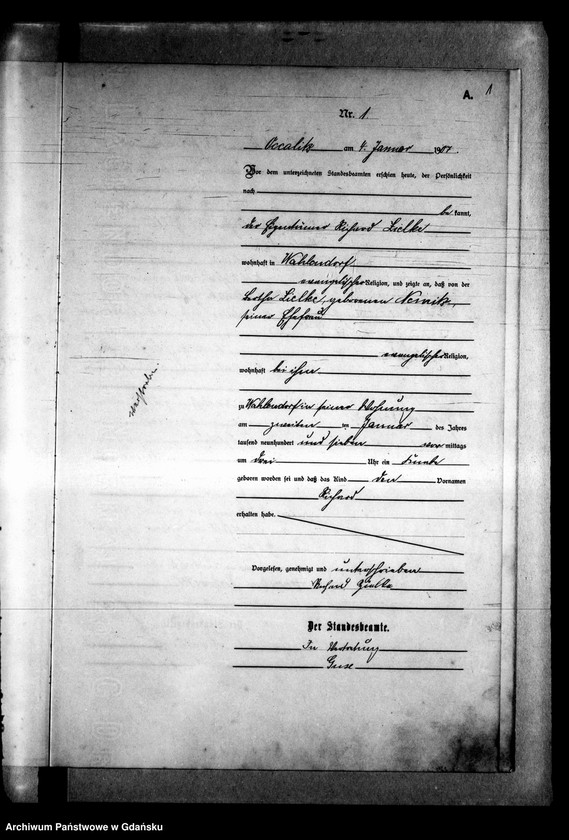 A. 1
Nr. 1
am 4. Januar 1907.
Vor dem unterzeichneten Standesbeamten erschien heute, der Persönlichkeit
nach
be kannt,
der Eigentümer Richard Lielke
wohnhaft in Wahlendorf
evangelischer Religion, und zeigte an, daß von der
Bertha Lielke, geborenen
seiner Ehefrau
evangelischer Religion,
wohnhaft bei ihm
zu Wahlendorf in seiner Wohnung
am zweiten ten Januar des Jahres
tausend neunhundert und sieben vor mittags
um drei Uhr ein Knabe
geboren worden sei und daß das Kind den Vornamen
Richard
erhalten habe.
Vorgelesen, genehmigt und unterschrieben
Richard
Der Standesbeamte.
In Vertretung
Guse
Archiwum Państwowe w Gdańsku